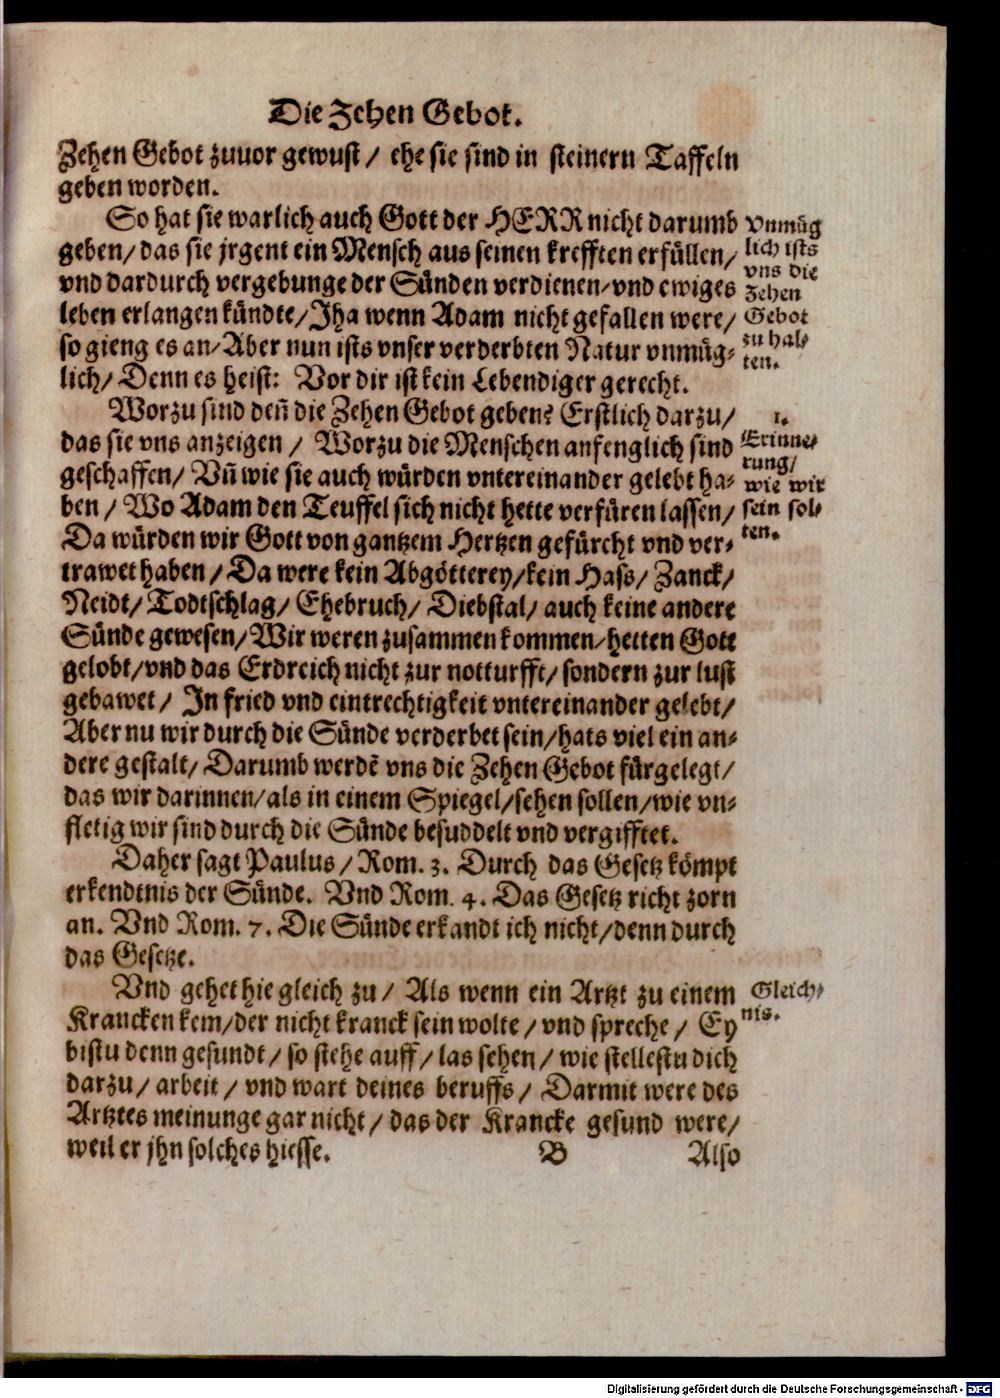 Die Zehen Gebot.
Zehen Gebot zuuor gewust / ehe sie sind in steinern Taffeln
geben worden.
So hat sie warlich auch Gott der HERR nicht darumb
geben / das sie jrgent ein Mensch aus seinen krefften erfüllen /
vnd dardurch vergebunge der Sünden verdienen / vnd ewiges
leben erlangen kündte / Jha wenn Adam nicht gefallen were /
so gieng es an / Aber nun ists vnser verderbten Natur vnmüg-
lich / Denn es heist: Vor dir ist kein Lebendiger gerecht.
Vnmüg
lich ists
vns die
Zehen
Gebot
zu hal-
ten.
Worzu sind deñ die Zehen Gebot geben? Erstlich darzu /
das sie vns anzeigen / Worzu die Menschen anfenglich sind
geschaffen / Vñ wie sie auch würden vntereinander gelebt ha-
ben / Wo Adam den Teuffel sich nicht hette verfüren lassen /
Da würden wir Gott von gantzem Hertzen gefürcht vnd ver-
trawet haben / Da were kein Abgötterey / kein Hass / Zanck /
Neidt / Todtschlag / Ehebruch / Diebstal / auch keine andere
Sünde gewesen / Wir weren zusammen kommen / hetten Gott
gelobt / vnd das Erdreich nicht zur notturfft / sondern zur lust
gebawet / In fried vnd eintrechtigkeit vntereinander gelebt /
Aber nu wir durch die Sünde verderbet sein / hats viel ein an-
dere gestalt / Darumb werdẽ vns die Zehen Gebot fürgelegt /
das wir darinnen / als in einem Spiegel / sehen sollen / wie vn-
fletig wir sind durch die Sünde besuddelt vnd vergifftet.
1.
Erinne-
rung /
wie wir
sein sol-
ten.
Daher sagt Paulus / Rom. 3. Durch das Gesetz kömpt
erkendtnis der Sünde. Vnd Rom. 4. Das Gesetz richt zorn
an. Vnd Rom. 7. Die Sünde erkandt ich nicht / denn durch
das Gesetze.
Vnd gehet hie gleich zu / Als wenn ein Artzt zu einem
Krancken kem / der nicht kranck sein wolte / vnd spreche / Ey
bistu denn gesundt / so stehe auff / las sehen / wie stellestu dich
darzu / arbeit / vnd wart deines beruffs / Darmit were des
Artztes meinunge gar nicht / das der Krancke gesund were /
weil er jhn solches hiesse.
Gleich-
nis.
B
Also
Digitalisierung gefördert durch die Deutsche Forschungsgemeinschaft - DFG